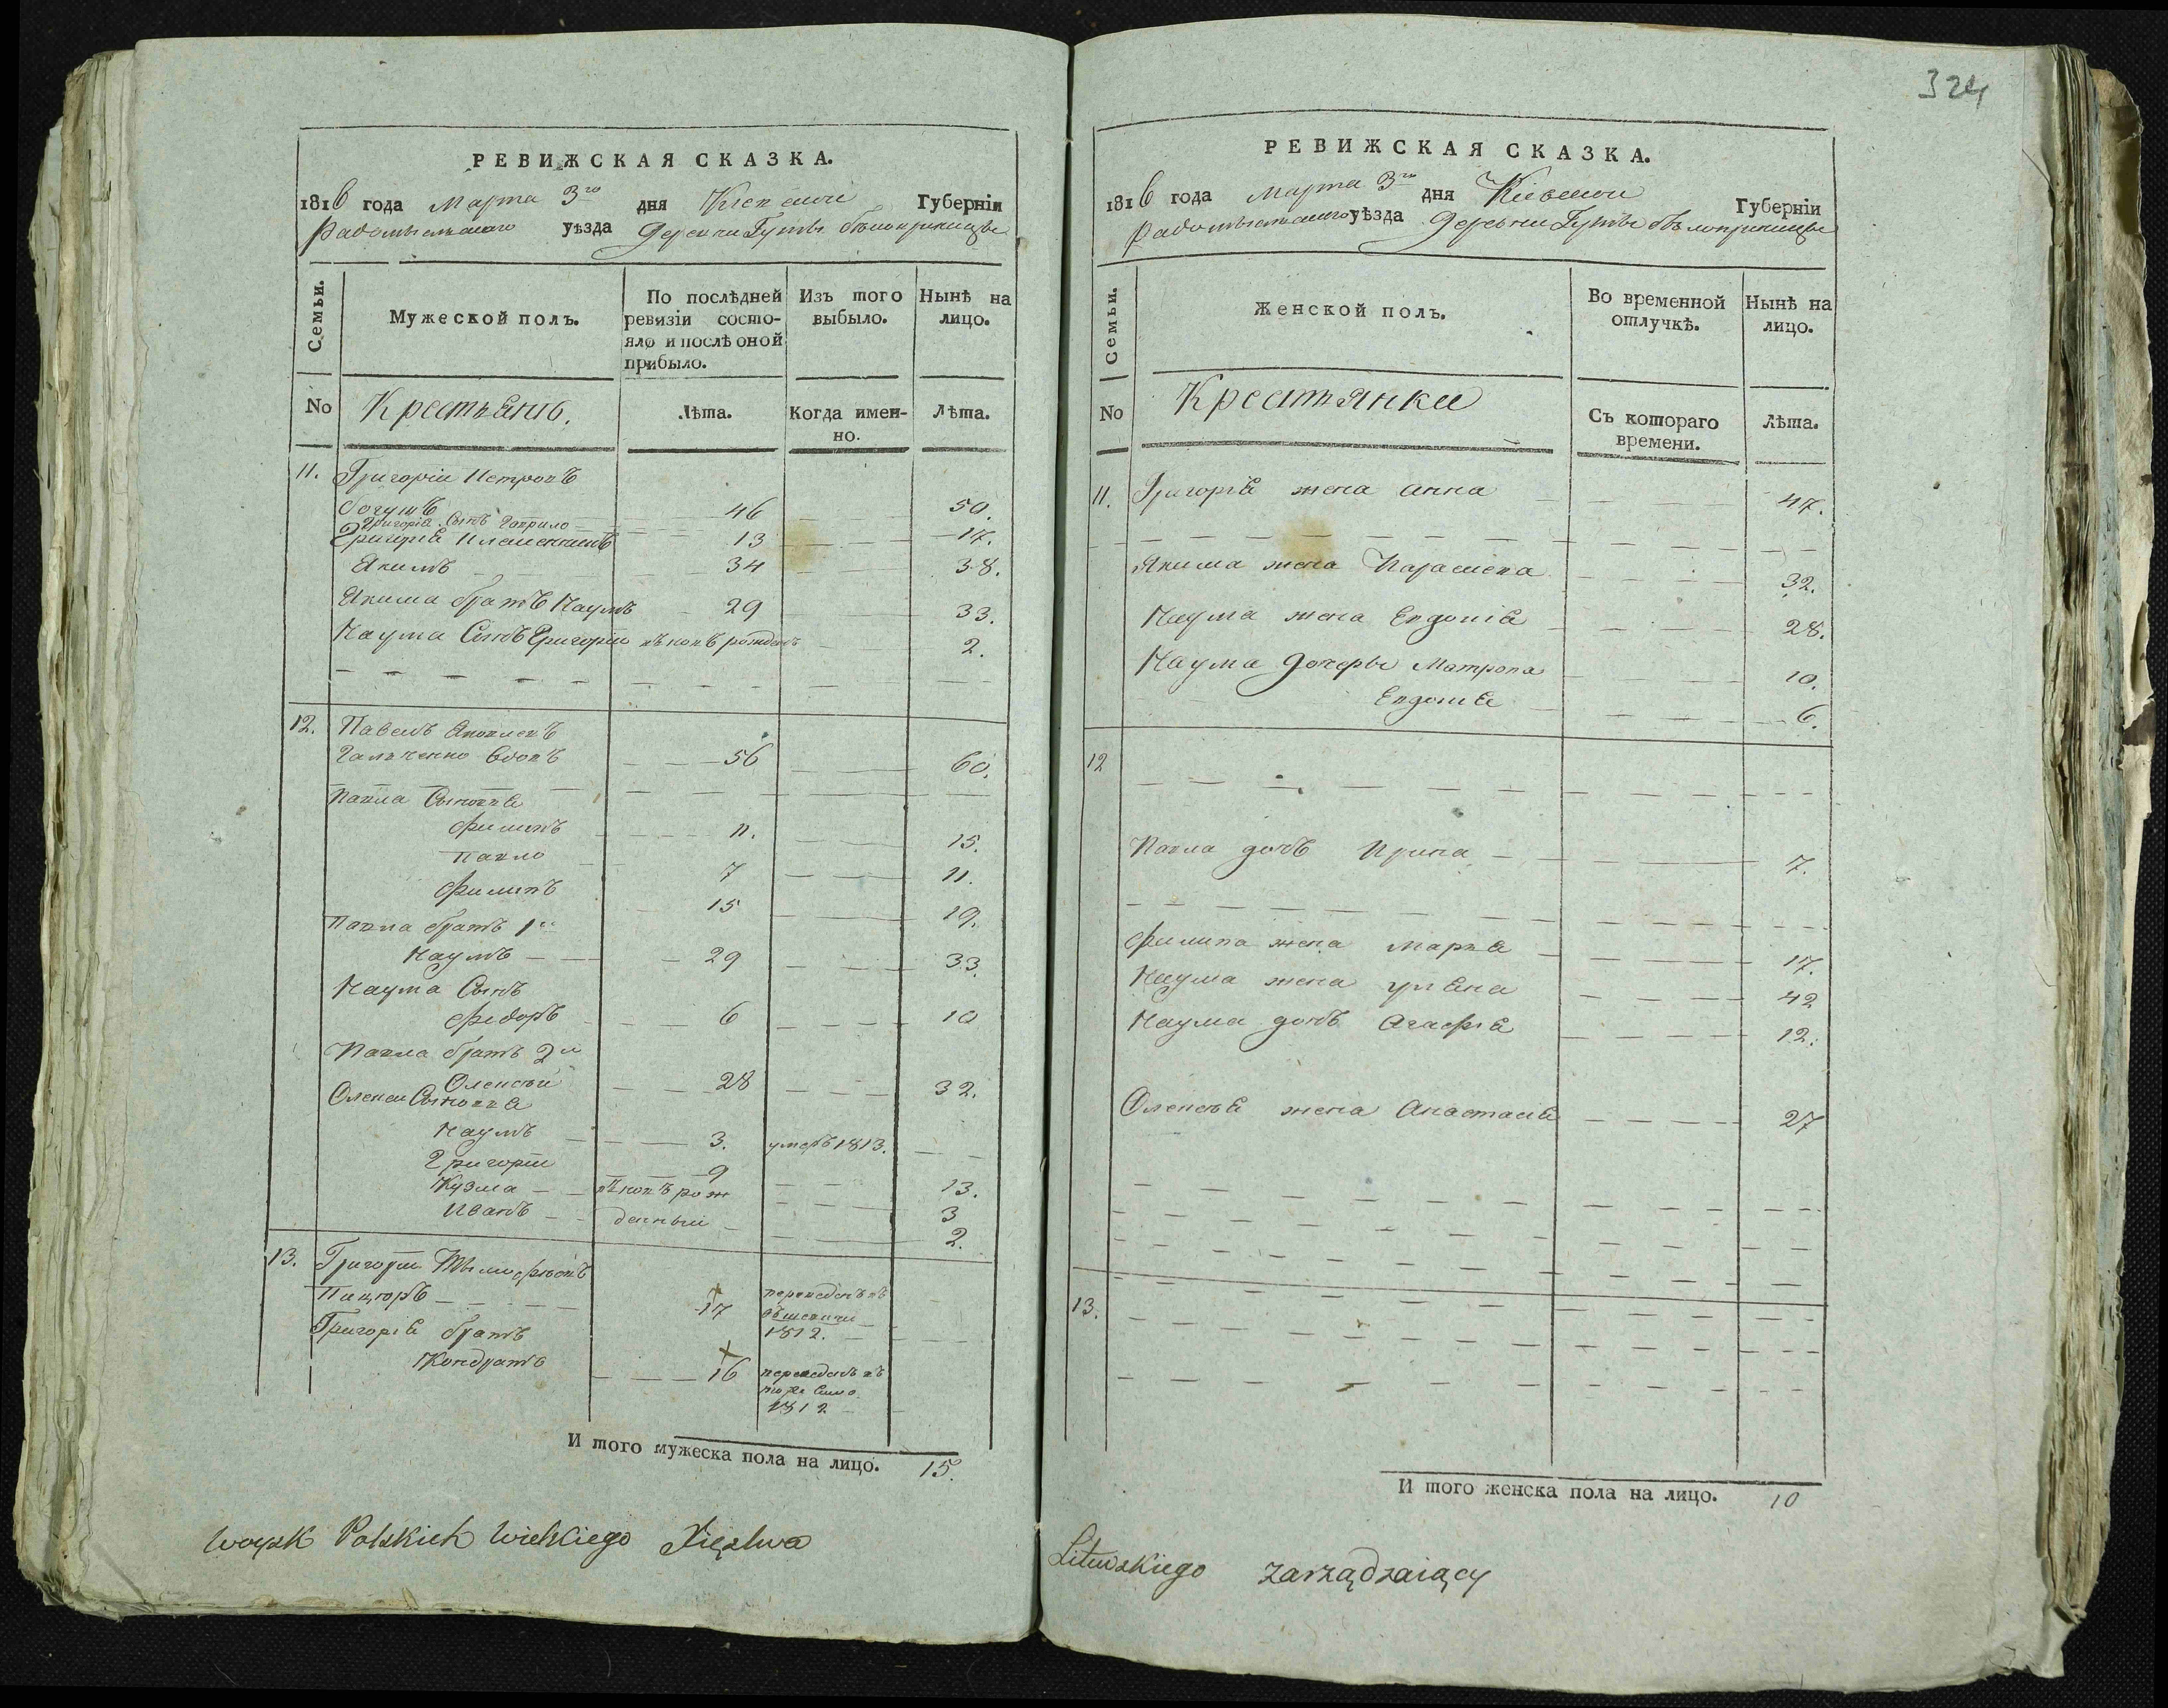 324
РЕВИЖСКАЯ СКАЗКА.
1816 года Марта 3го дня Киевской Губерніи
Радомысльскаго уѣзда Деревни Гуты бѣлокриницы
Семьи.
Мужеской полъ.
По послѣдней ревизіи состо-
яло и послѣ оной
прибыло.
Изъ того выбыло.
Нынѣ на лицо.
No Крестьянъ.
Лѣта.
Когда имен-
но.
Лѣта.
11. Григорій Петровъ
богушъ 46 50.
Григорія Сынъ Гаврило 13 17.
Григорія племенникъ
Якимъ 34 38.
Якима братъ Наумъ 29 33.
Наума Сынъ Григорій вновь рожденъ 2.
12. Павелъ Яковлевъ
Гальченко вдовъ 56 60.
Павла Сыновья
Филипъ 11. 15.
Павло 7 11.
Филипъ 15 19.
Павла братъ 1й
Наумъ 29 33.
Наума Сынъ
Федоръ 6 10
Павла братъ 2й
Олексѣй 28 32.
Олексѣя Сыновья
Наумъ 3. умеръ 1813.
Григорій 9 13.
Кузма вновь рож 3
Иванъ денный 2.
13. Григорій Тимофѣевъ
17 переведенъ въ
1812.
Григорія братъ
Кондратъ 16 переведенъ въ
тоже село
1812
И того мужеска пола на лицо. 15.
Woysk Polskich Wielkiego Xięstwa
РЕВИЖСКАЯ СКАЗКА.
1816 года Марта 3го дня Киевской Губерніи
Радомысльскаго уѣзда Деревни Гуты бѣлокриницы
Семьи.
Женской полъ.
Во временной отлучкѣ.
Нынѣ на лицо.
No Крестьянки
Съ котораго времени.
Лѣта.
11. Григорія жена Анна 47.
Якима жена Параскева 32.
Наума жена Евдокія 28.
Наума дочеры Матрона 10.
Евдокія 6.
12
Павла дочь Ирина 7.
Филипа жена Марья 17.
Наума жена Ульяна 42
Наума дочь Агафія 12.
Олексѣя жена Анастасія 27
13.
И того женска пола на лицо. 10
Litewskiego zarządzaiący